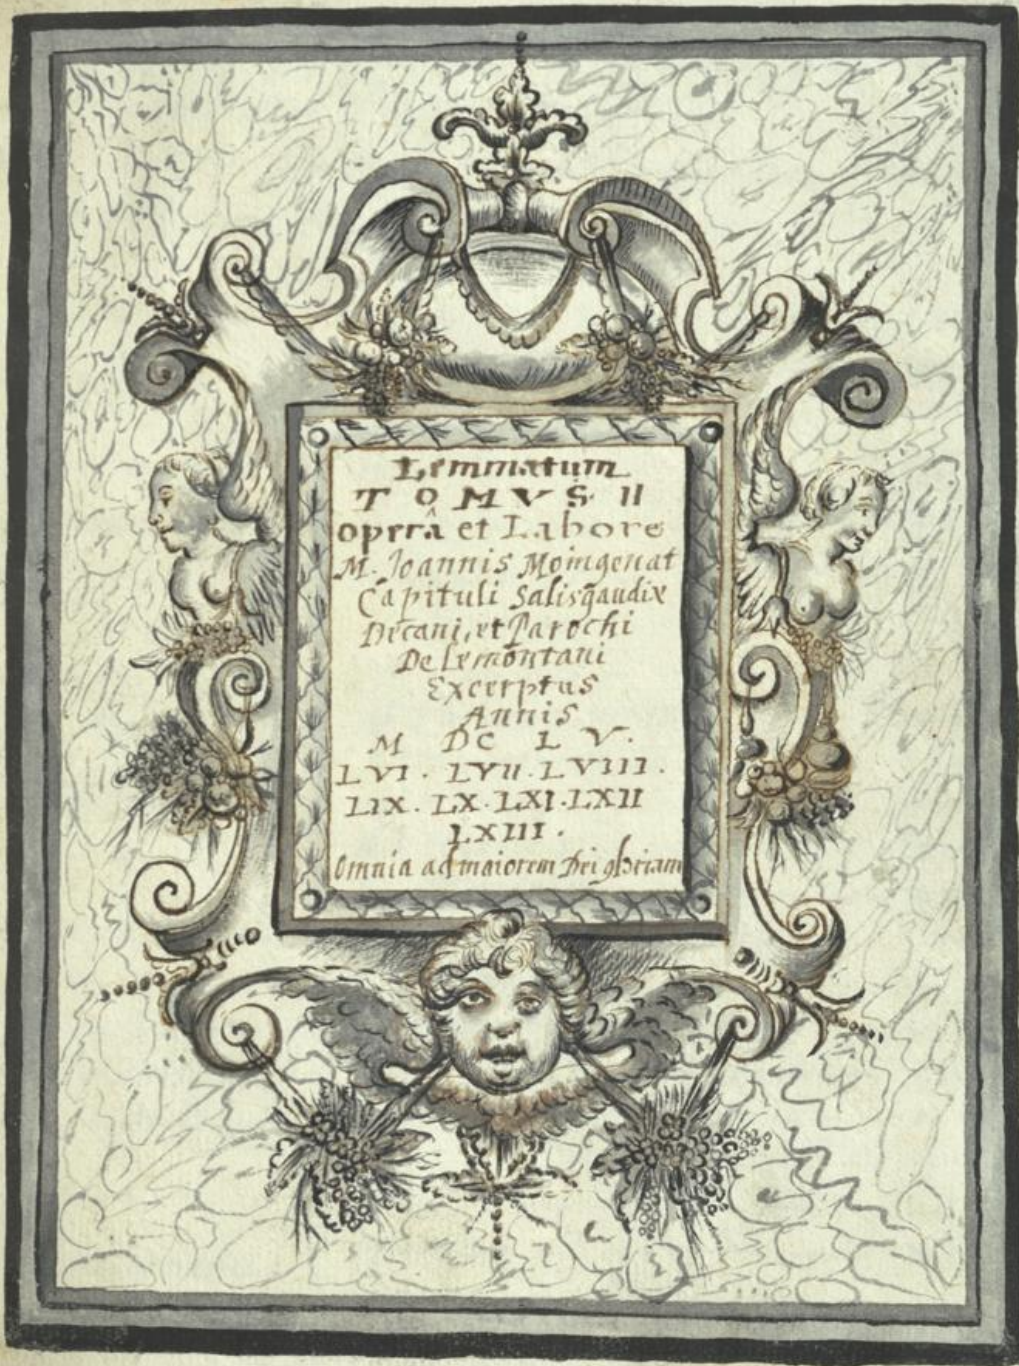 Lemmatum
TOMVS II
operâ et Labore
M. Joannis Moingenat
Capituli Salisgaudix
Decani, et Parochi
Delemontani
Excerptus
Annis
M DC L V.
LVI. LVII. LVIII.
LIX. LX. LXI. LXII
LXIII.
Omnia ad maiorem Dei gloriam